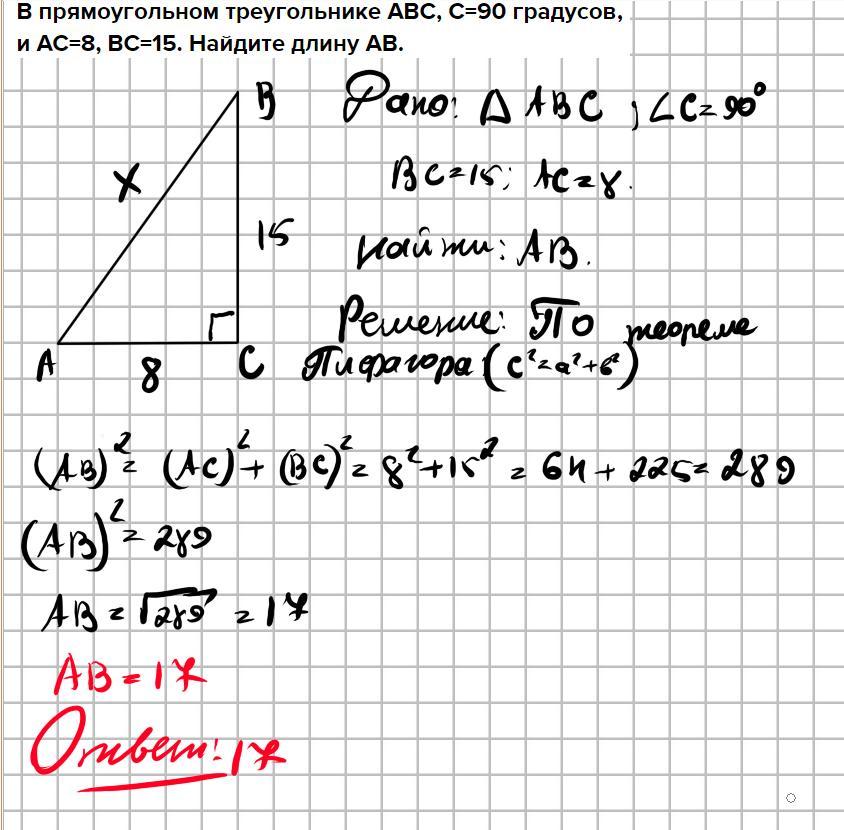 В прямоугольном треугольнике ABC, C=90 градусов,
и AC=8, BC=15. Найдите длину AB.
B
Дано: Δ ABC ; ∠C=90°
X
BC=15; AC=8.
15
Найти: AB.
Решение: По теореме
A
8
C
Пифагора (c²=a²+b²)
(AB)² = (AC)² + (BC)² = 8² + 15² = 64 + 225 = 289
(AB)² = 289
AB = √289 = 17
AB = 17
Ответ: 17